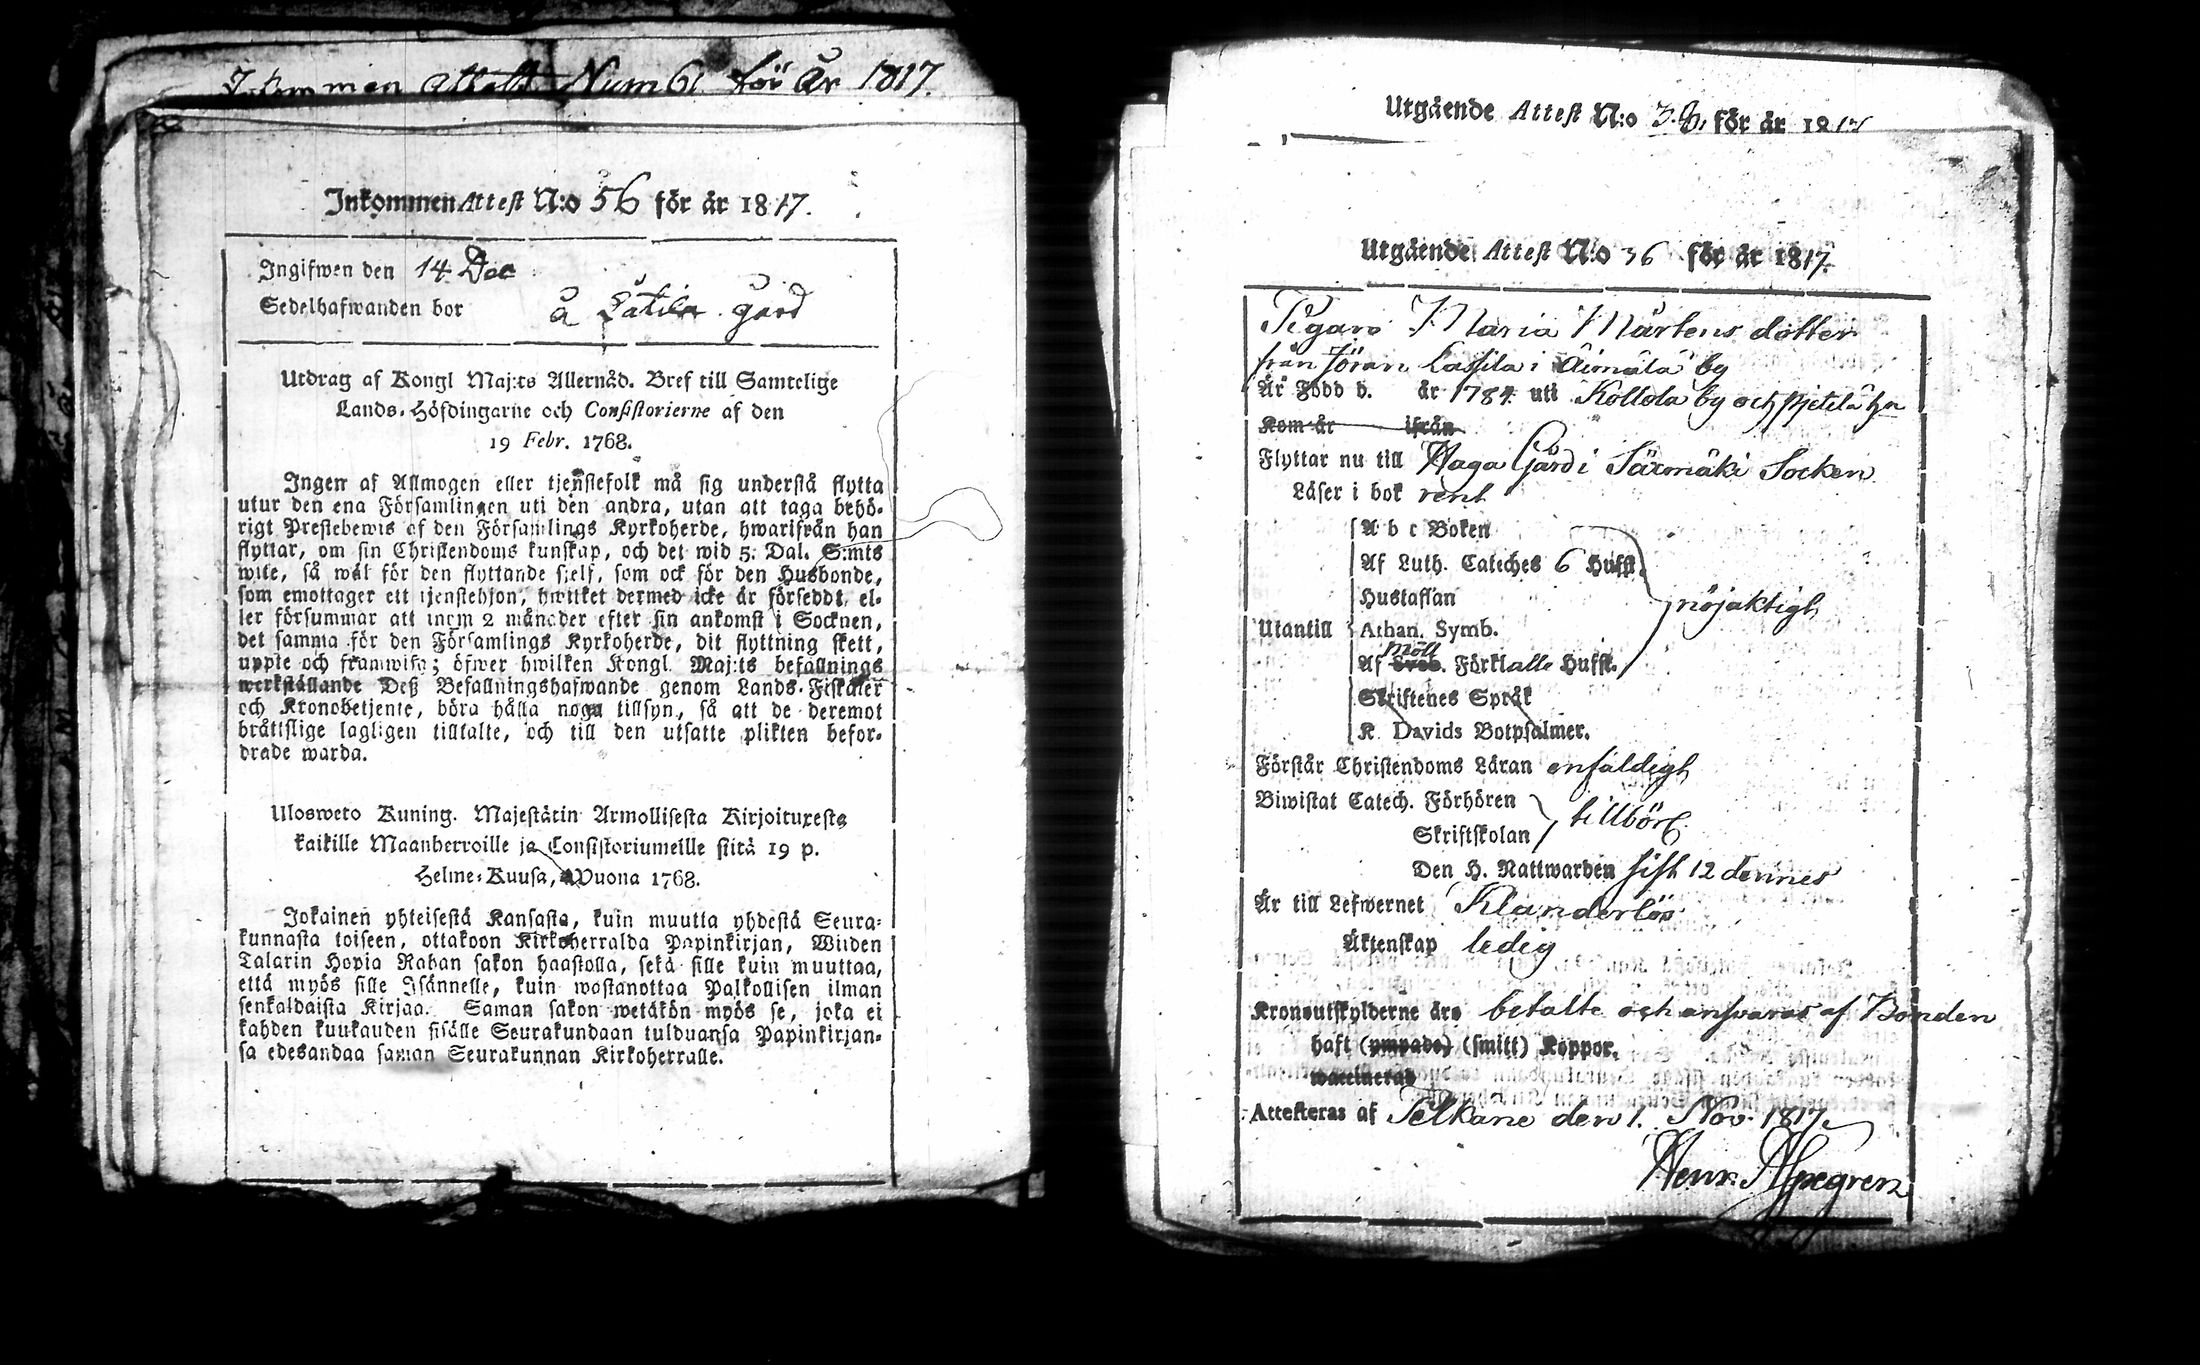 Inkommen attest Num 61 för År 1817.
Inkommen Attest N:o 56 för år 1817.
Ingifwen den 14 Dec
Sedelhafwanden bor å Lätila gård
Utdrag af Kongl Maj:ts Allernåd. Bref till Samtelige
Lands-Höfdingarne och Consistorierne af den
19 Febr. 1768.
Ingen af Allmogen eller tjenstefolk må sig understå flytta
utur den ena Församlingen uti den andra, utan att taga behö-
rigt Prestebewis af den Församlings Kyrkoherde, hwarifrån han
flyttar, om sin Christendoms kunskap, och det wid 5. Dal. S:mts
wite, så wäl för den flyttande sjelf, som ock för den Husbonde,
som emottager ett tjenstehjon, hwilket dermed icke är försedt, el-
ler försummar att inom 2 månader efter sin ankomst i Socknen,
det samma för den Församlings Kyrkoherde, dit flyttning skett,
uppte och framwisa; öfwer hwilken Kongl. Maj:ts befallnings
werkställande Deß Befallningshafwande genom Lands-Fiskaler
och Kronobetjente, böra hålla noga tillsyn, så att de deremot
bråtislige lagligen tilltalte, och till den utsatte plikten befor-
drade warda.
Ulosweto Kuning. Majestätin Armollisesta Kirjoituxesta
kaikille Maanherroille ja Consistoriumeille siitä 19 p.
Helme-Kuusa, Wuona 1768.
Jokainen yhteisestä Kansasta, kuin muutta yhdestä Seura-
kunnasta toiseen, ottakoon Kirkoherralda Papinkirjan, Wiiden
Talarin Hopia Rahan sakon haastolla, sekä sille kuin muuttaa,
että myös sille Isännelle, kuin wastanottaa Palkollisen ilman
senkaldaista Kirjaa. Saman sakon wetäkön myös se, joka ei
kahden kuukauden sisälle Seurakundaan tulduansa Papinkirjan-
sa edesandaa saman Seurakunnan Kirkoherralle.
Utgående Attest N:o 38, för år 1817
Utgående Attest N:o 36 för år 1817.
Pigan Maria Mårtens dotter
från Jöran Lassila i Äimälä by
År Född d. år 1784. uti Kollola by och Pjetilä hn
Kom år ifrån
Flyttar nu till Haga Gård i Säxmäki Socken
Läser i bok rent
A b c Boken
Af Luth. Cateches 6 Hufst.
Hustaflan nöjaktigt
Utantill Athan. Symb.
Möll
Af Sveb. Förkl alle Hufst.
Skriftenes Språk
K. Davids Botpsalmer.
Förstår Christendoms Läran enfaldigt
Biwistat Catech. Förhören
Skriftskolan tillbörl.
Den H. Nattwarden sist 12 dennes
Är till Lefwernet Klanderlös
Äktenskap ledig
Kronoutskylderne äro betalte och answaras af Bonden
haft (ympade) (smitt) Koppor.
waccinerad
Attesteras af Pelkäne den 1. Nov. 1817.
Henr. Alpegren